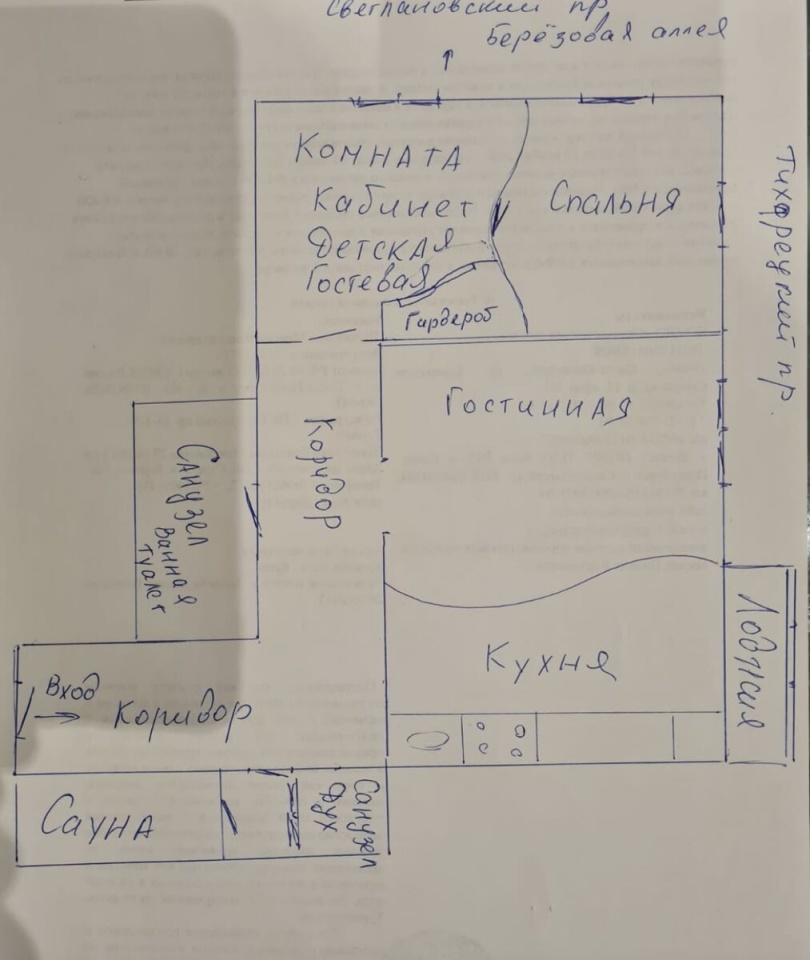 Светлановский пр
Берёзовая аллея
Комната
Кабинет
Детская
Гостевая
Спальня
Гардероб
Тихорецкий пр.
Гостинная
Коридор
Санузел
Ванная
Туалет
Кухня
Лоджия
Вход
Коридор
Сауна
Санузел
Дух